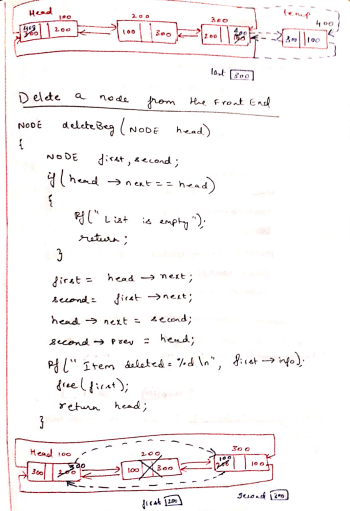 Head 100 200 300 temp 400
200 100 300 200 300 100
last 300
Delete a node from the Front End
NODE deleteBeg (NODE head)
{
NODE first, second;
if (head → next == head)
{
Pf ("List is empty");
return;
}
first = head → next;
second = first → next;
head → next = second;
second → prev = head;
Pf ("Item deleted = %d \n", first → info);
free (first);
return head;
}
Head 100 200 300
300 200 300 100 300 200 100 100
first 200 second 300